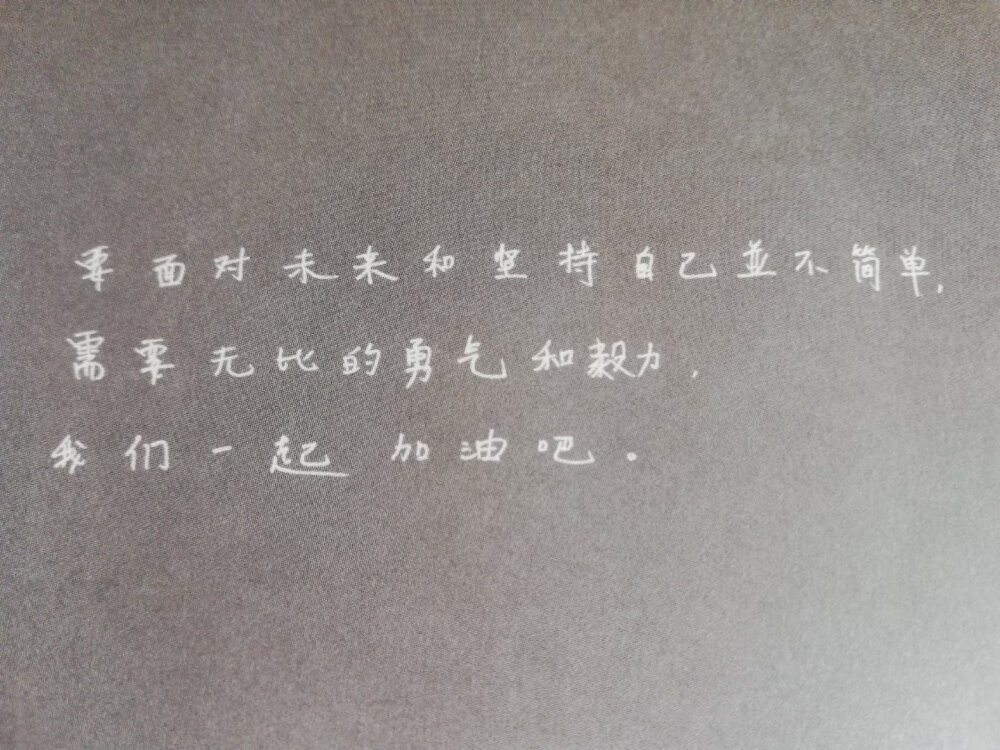 要面对未来和坚持自己並不简单,
需要无比的勇气和毅力,
我们一起加油吧。